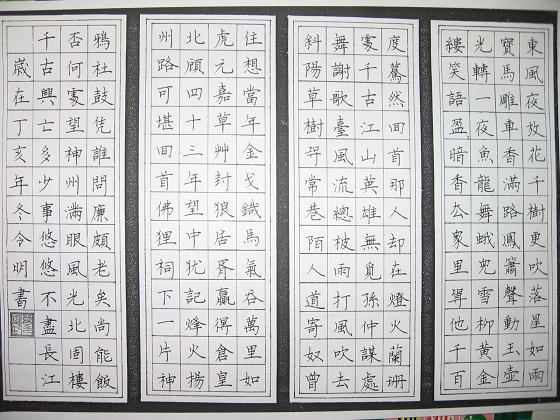 東風夜放花千樹更吹落星如雨
寶馬雕車香滿路鳳簫聲動玉壺
光轉一夜魚龍舞蛾兒雪柳黃金
縷笑語盈暗香去眾里尋他千百
度驀然回首那人卻在燈火蘭珊
處千古江山英雄無覓孫仲謀處
舞謝歌臺風流總被雨打風吹去
斜陽草樹尋常巷陌人道寄奴曾
住想當年金戈鐵馬氣吞萬里如
虎元嘉草艸封狼居胥贏得倉皇
北顧四十三年望中猶記烽火揚
州路可堪回首佛狸祠下一片神
鴉社鼓凭誰問廉頗老矣尚能飯
否何處望神州滿眼風光北固樓
千古興亡多少事悠悠不盡長江
歲在丁亥年冬令明書